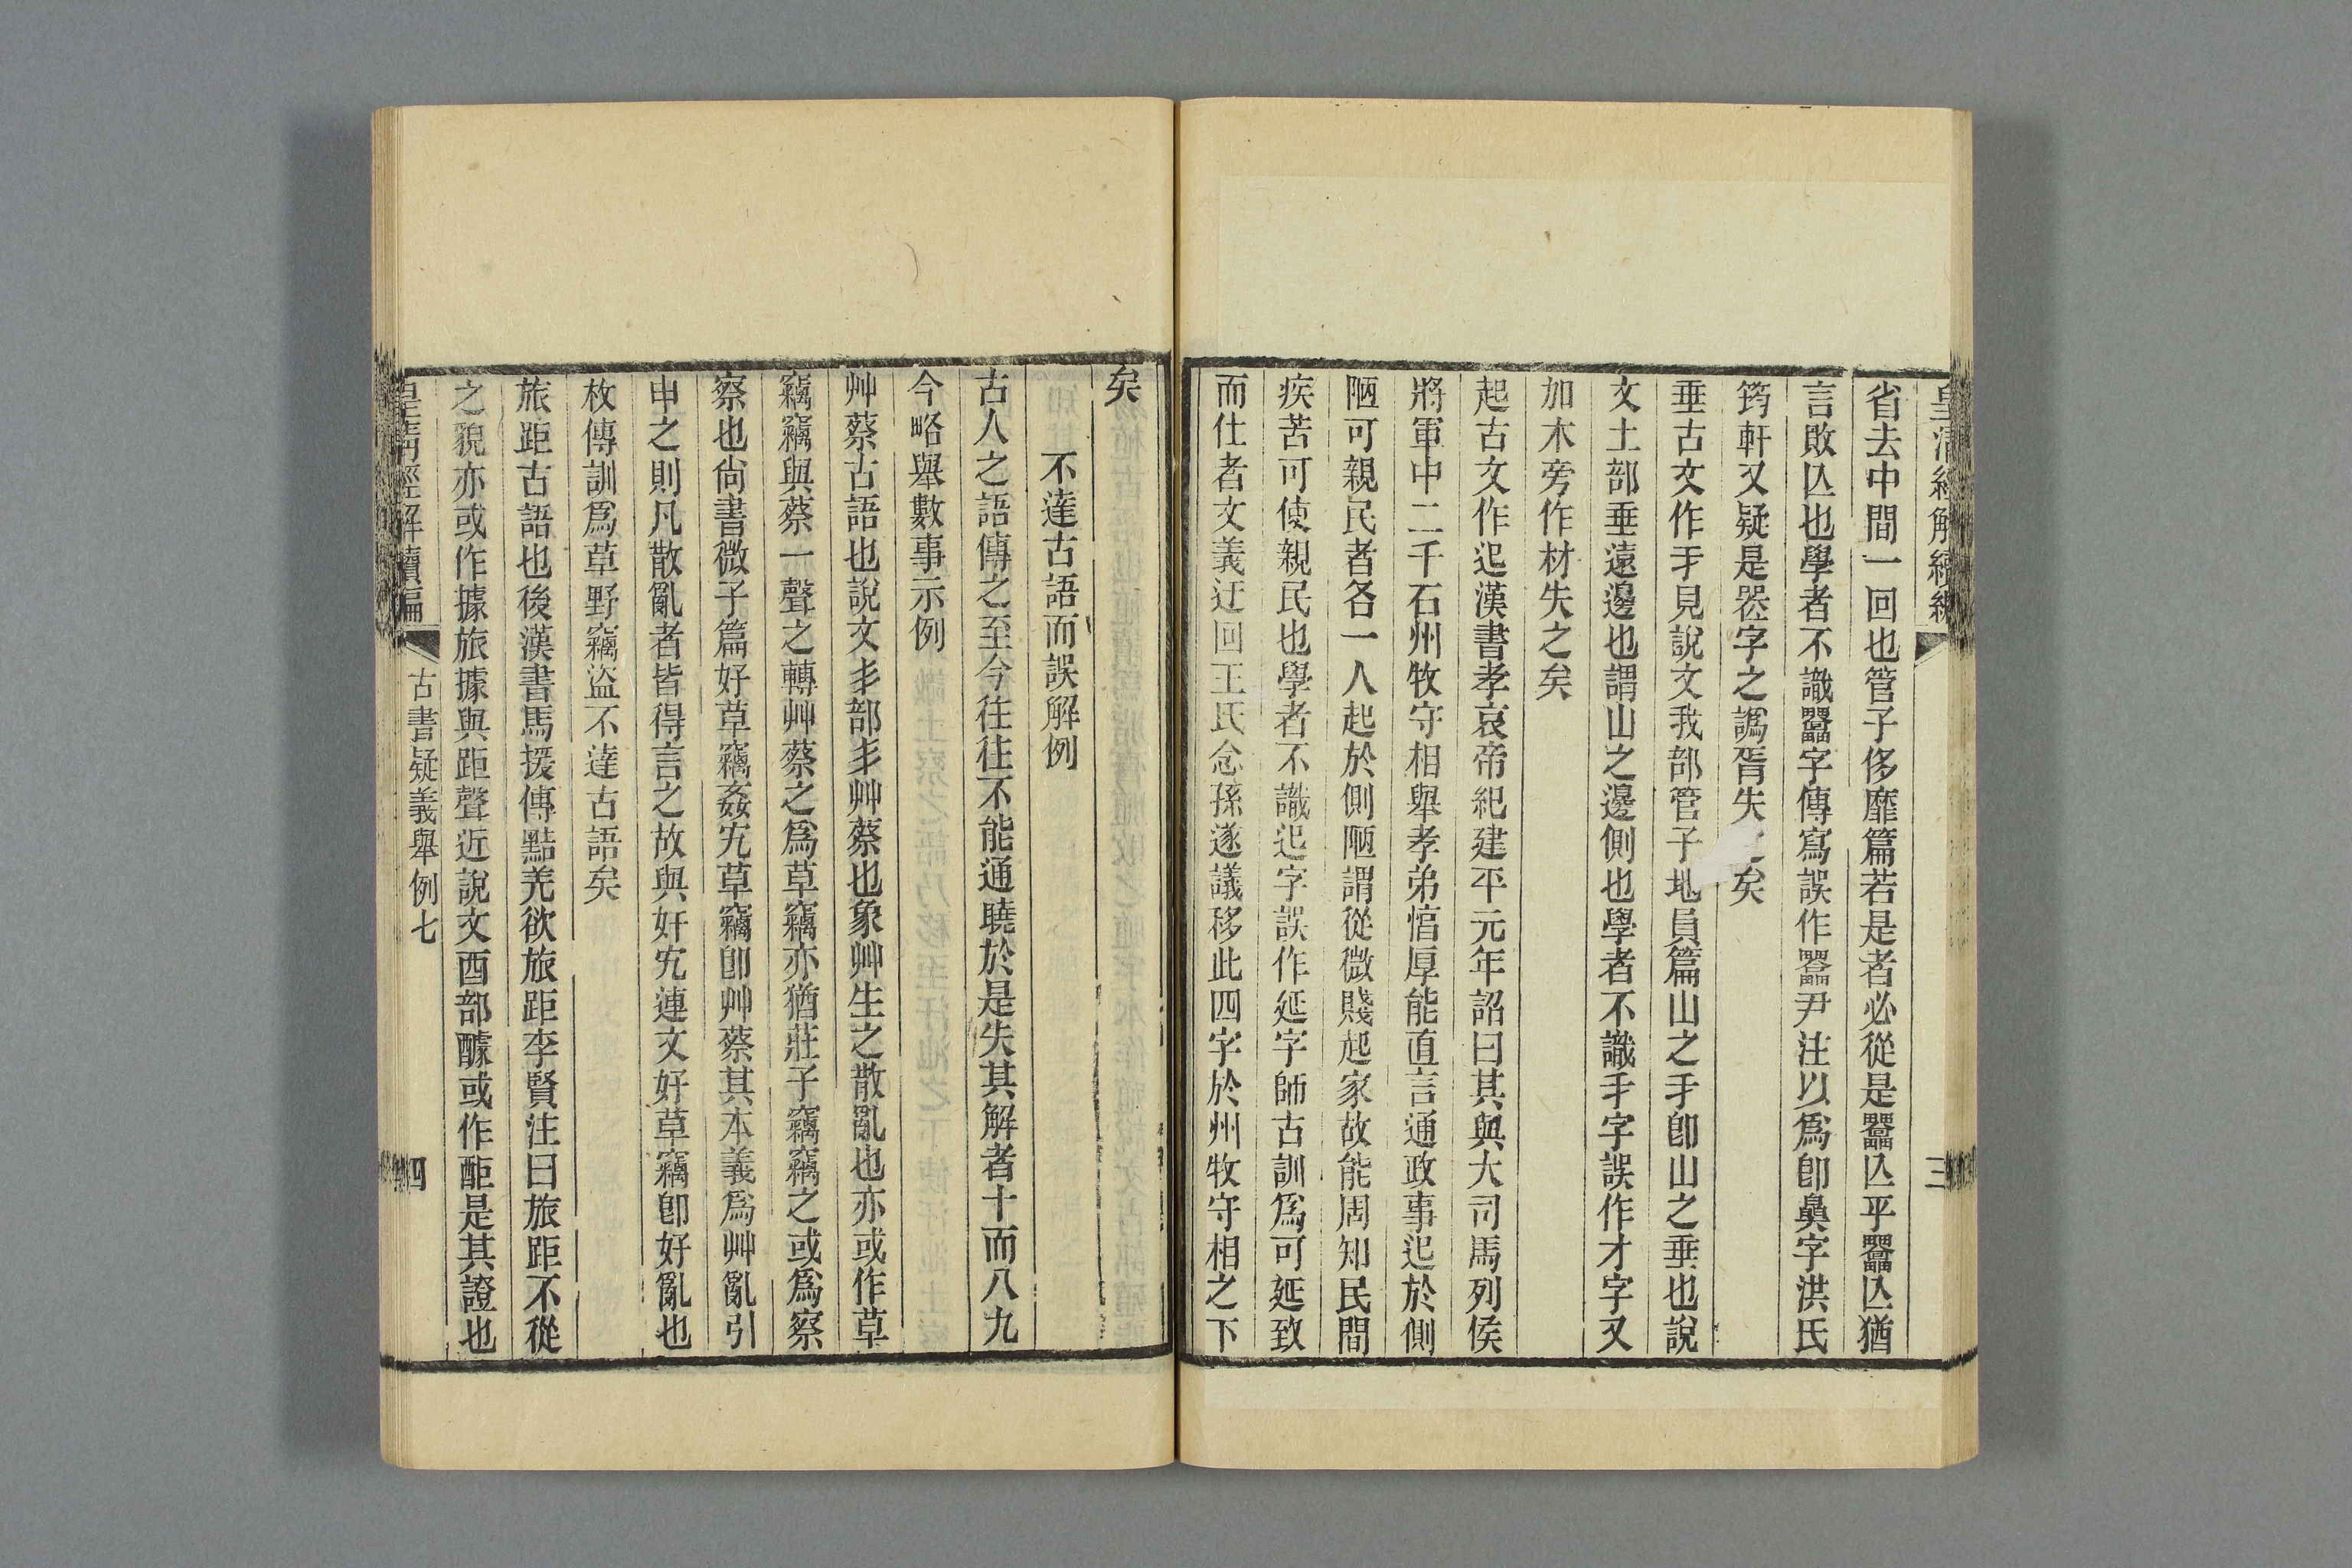 皇清經解續編
三
省去中間一回也管子侈靡篇若是者必從是䨻亾乎䨻亾猶
言敗亾也學者不識䨻字傳寫誤作𤳳尹注以爲卽𤳳字洪氏
筠軒又疑是𠾂字之譌胥失矣
垂古文作𠂹見說文我部管子地員篇山之𠂹卽山之垂也說
文土部垂遠邊也謂山之邊側也學者不識𠂹字誤作才字又
加木旁作材失之矣
起古文作𨑔漢書孝哀帝紀建平元年詔曰其與大司馬列侯
將軍中二千石州牧守相舉孝弟惇厚能直言通政事𨑔於側
陋可親民者各一人起於側陋謂從微賤起家故能周知民間
疾苦可使親民也學者不識𨑔字誤作延字師古訓爲可延致
而仕者文義迂回王氏念孫遂議移此四字於州牧守相之下
矣
不達古語而誤解例
古人之語傳之至今往往不能通曉於是失其解者十而八九
今略舉數事示例
艸蔡古語也說文丯部丯艸蔡也象艸生之散亂也亦或作草
竊竊與蔡一聲之轉艸蔡之爲草竊亦猶莊子竊竊之或爲察
察也尙書微子篇好草竊姦宄草竊卽艸蔡其本義爲艸亂引
申之則凡散亂者皆得言之故與奸宄連文好草竊卽好亂也
枚傳訓爲草野竊盜不達古語矣
旅距古語也後漢書馬援傳黠羌欲旅距李賢注曰旅距不從
之貌亦或作據旅據與距聲近說文酉部醵或作䣰是其證也
皇淸經解續編
古書疑義舉例七
四